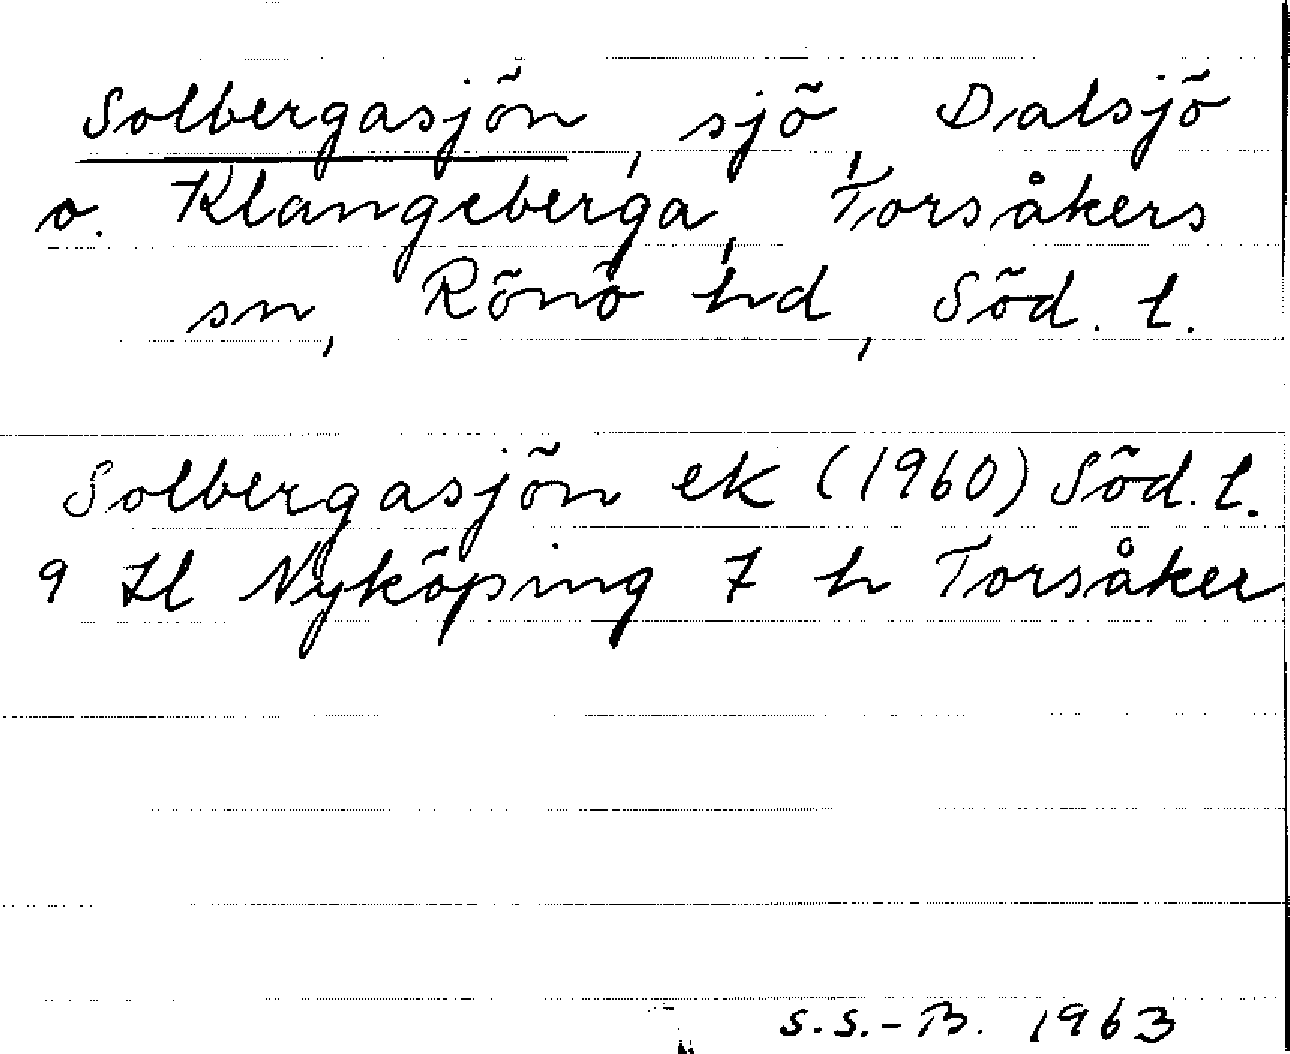 Solbergasjön, sjö, Dalsjö
o. Klangeberga, Torsåkers
sn, Rönö hd, Söd. l.
Solbergasjön ek (1960) Söd. l.
9 Il Nyköping 7 h Torsåker
S.S.-B. 1963